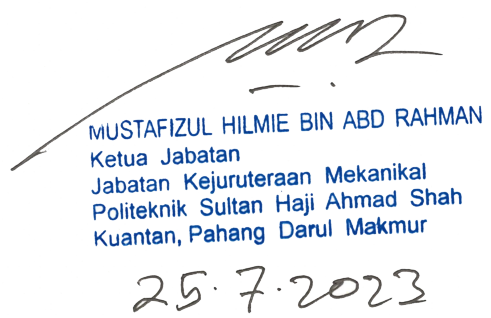 MUSTAFIZUL HILMIE BIN ABD RAHMAN
Ketua Jabatan
Jabatan Kejuruteraan Mekanikal
Politeknik Sultan Haji Ahmad Shah
Kuantan, Pahang Darul Makmur
25.7.2023